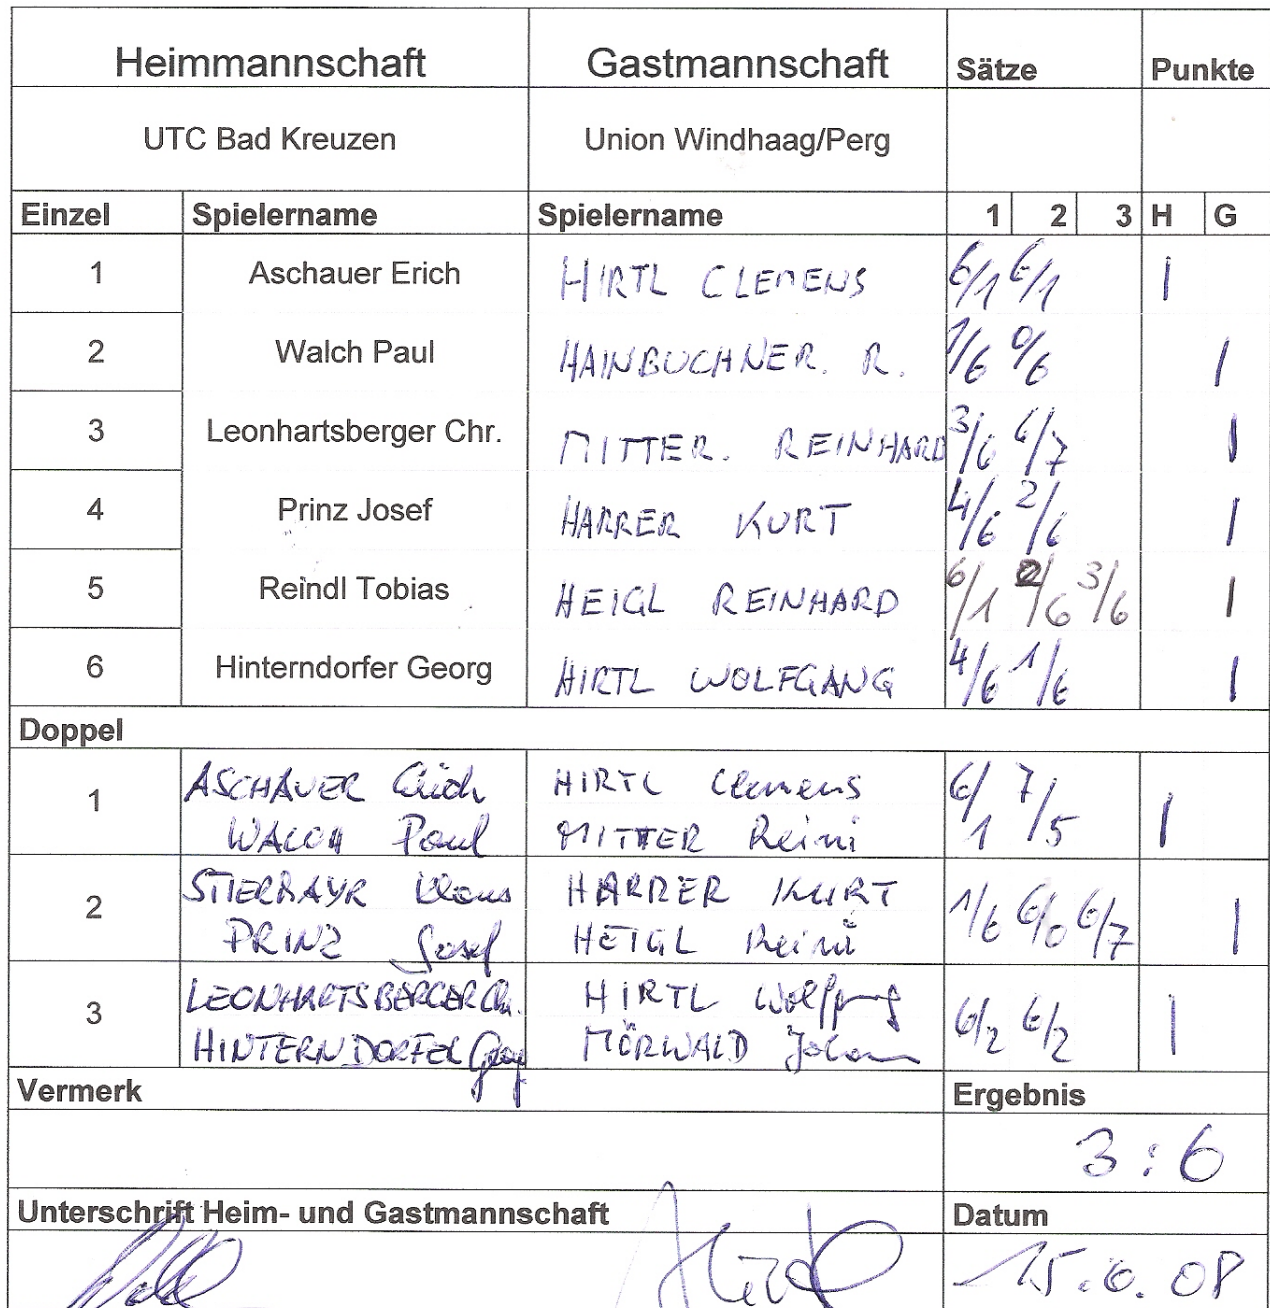 Heimmannschaft Gastmannschaft Sätze Punkte
UTC Bad Kreuzen Union Windhaag/Perg
Einzel Spielername Spielername 1 2 3 H G
1 Aschauer Erich HIRTL CLEMENS 6/1 6/1 |
2 Walch Paul HAINBUCHNER. R. 1/6 0/6 |
3 Leonhartsberger Chr. MITTER. REINHARD 3/6 6/7 |
4 Prinz Josef HARRER KURT 4/6 2/6 |
5 Reindl Tobias HEIGL REINHARD 6/1 2/6 3/6 |
6 Hinterndorfer Georg HIRTL WOLFGANG 4/6 1/6 |
Doppel
ASCHAUER Erich HIRTL Clemens
1 6/1 7/5 |
WALCH Paul MITTER Reini
STIERMAYR Klaus HARRER KURT
2 1/6 6/0 6/7 |
PRINZ Josef HEIGL Reini
LEONHARTSBERGER Chr. HIRTL Wolfgang
3 6/2 6/2 |
HINTERNDORFER Georg MÖRWALD Johann
Vermerk Ergebnis
3:6
Unterschrift Heim- und Gastmannschaft Datum
15.6.08